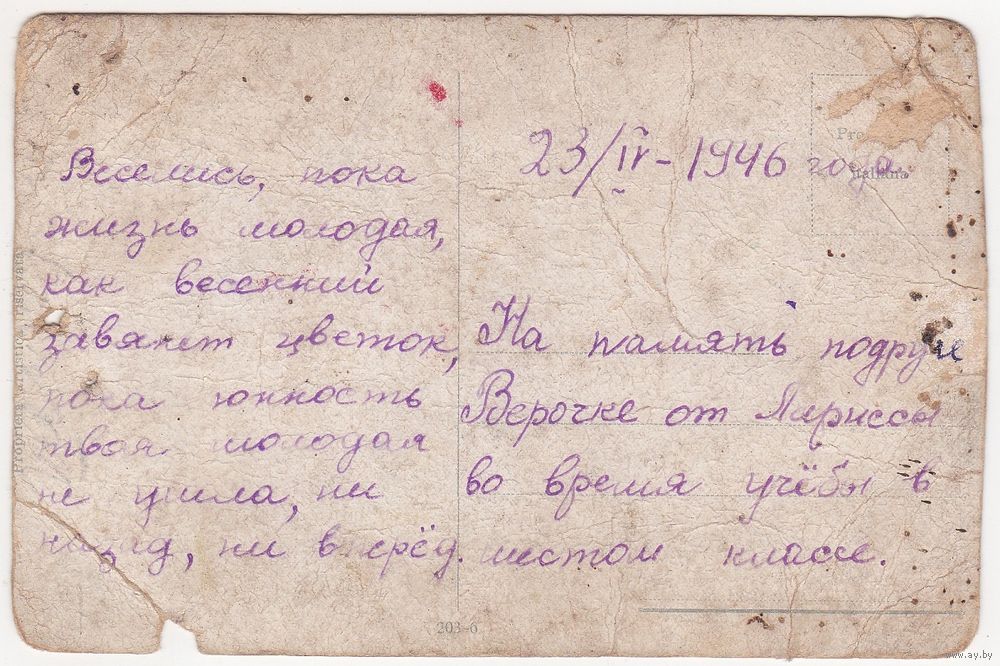 Веселись, пока
жизнь молодая,
как весенний
завянет цветок,
пока юнность
твоя молодая
не ушла, ни
назад, ни вперёд.
23/IV-1946 года.
На память подруге
Верочке от Лариссы
во время учёбы в
шестом классе.
Proprietà artistica riservata
italiana
203-6
www.ay.by